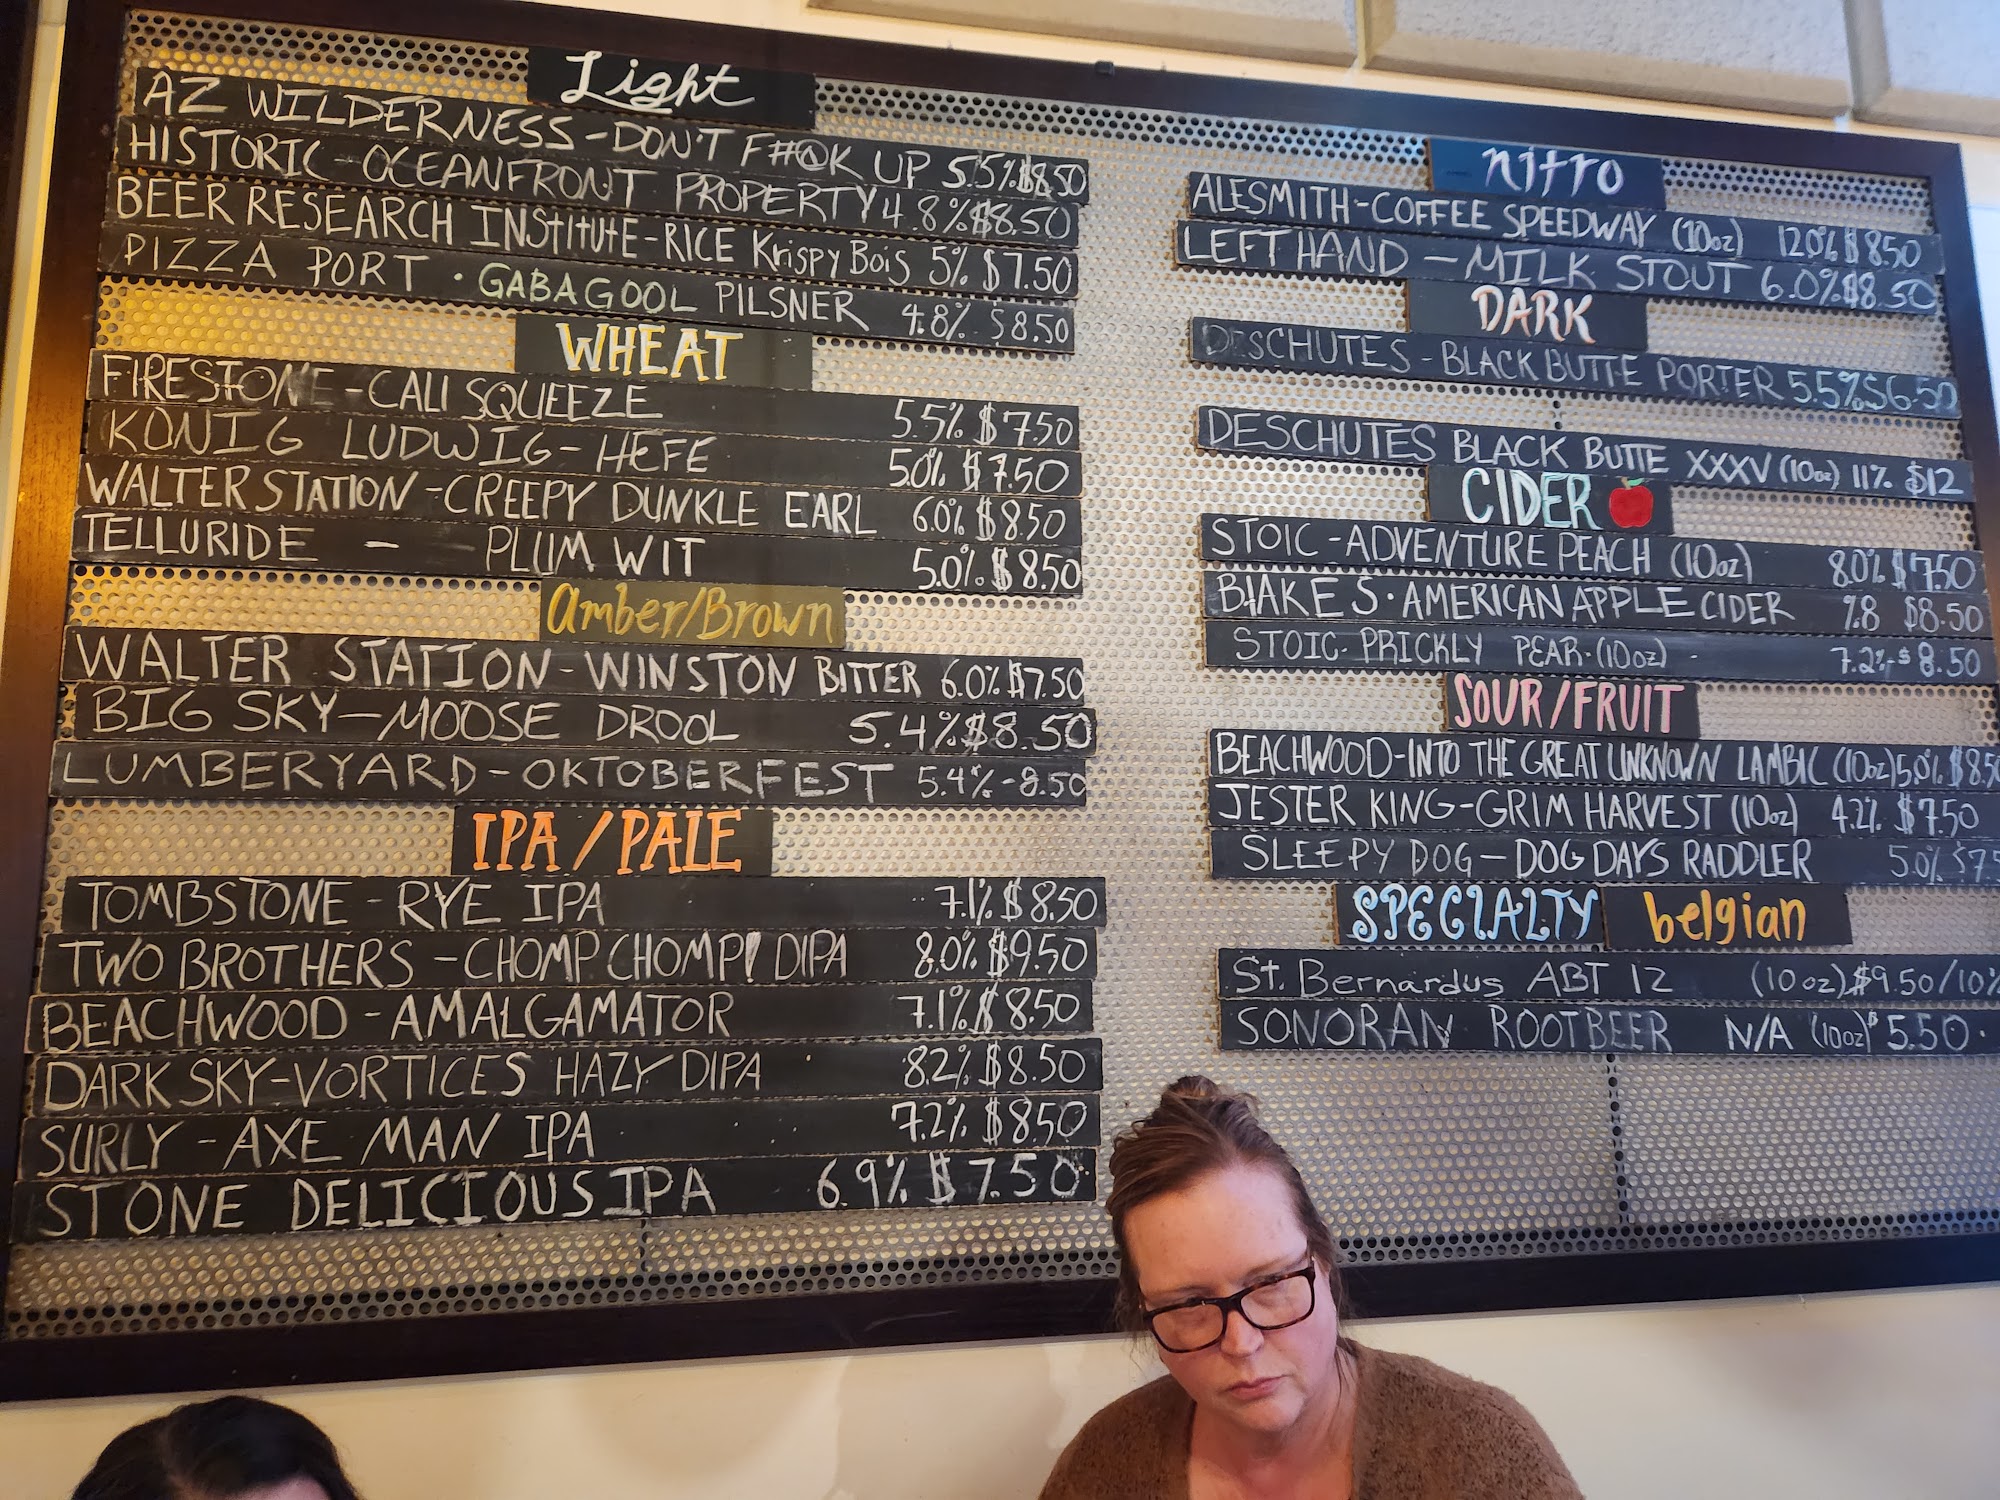 Light
AZ WILDERNESS - DON'T F#@K UP 5.5% $8.50
HISTORIC - OCEANFRONT PROPERTY 4.8% $8.50
BEER RESEARCH INStItUtE - RICE Krispy Bois 5% $7.50
PIZZA PORT · GABAGOOL PILSNER 4.8% $8.50
WHEAT
FIRESTONE - CALI SQUEEZE 5.5% $7.50
KONIG LUDWIG - HEFE 5.0% $7.50
WALTER STATION - CREEPY DUNKLE EARL 6.0% $8.50
TELLURIDE - PLUM WIT 5.0% $8.50
Amber/Brown
WALTER STATION - WINSTON BITTER 6.0% $7.50
BIG SKY - MOOSE DROOL 5.4% $8.50
LUMBERYARD - OKTOBERFEST 5.4% - 8.50
IPA / PALE
TOMBSTONE - RYE IPA 7.1% $8.50
TWO BROTHERS - CHOMP CHOMP! DIPA 8.0% $9.50
BEACHWOOD - AMALGAMATOR 7.1% $8.50
DARK SKY - VORTICES HAZY DIPA 8.2% $8.50
SURLY - AXE MAN IPA 7.2% $8.50
STONE DELICIOUS IPA 6.9% $7.50
nitro
ALESMITH - COFFEE SPEEDWAY (10oz) 12.0% $8.50
LEFT HAND - MILK STOUT 6.0% $8.50
DARK
DESCHUTES - BLACK BUTTE PORTER 5.5% $6.50
DESCHUTES BLACK BUTTE XXXV (10oz) 11% $12
CIDER
STOIC - ADVENTURE PEACH (10oz) 8.0% $7.50
BLAKES · AMERICAN APPLE CIDER %.8 $8.50
STOIC · PRICKLY PEAR · (10oz) - 7.2% - $8.50
SOUR/FRUIT
BEACHWOOD - INTO THE GREAT UNKNOWN LAMBIC (10oz) 5.0% $8.50
JESTER KING - GRIM HARVEST (10oz) 4.2% $7.50
SLEEPY DOG - DOG DAYS RADDLER 5.0% $7.5
SPECIALTY belgian
St. Bernardus ABT 12 (10oz) $9.50/10%
SONORAN ROOTBEER N/A (10oz) $5.50.